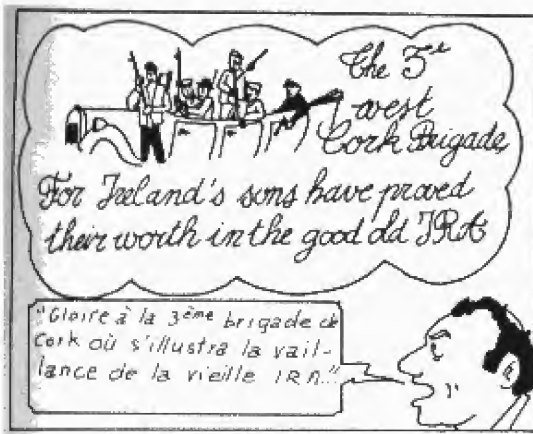 The 3e
west
Cork Brigade
For Ireland's sons have proved
their worth in the good old IRA
"Gloire à la 3ème brigade de
Cork où s'illustra la vail-
lance de la vieille IRA..."